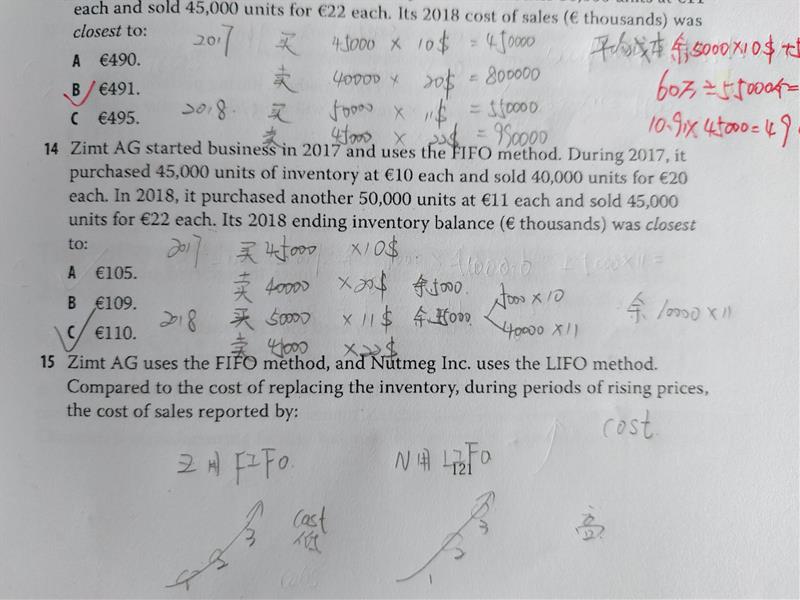 each and sold 45,000 units for €22 each. Its 2018 cost of sales (€ thousands) was
closest to:
2017 买 45000 × 10$ = 450000
平均成本 余5000×10$+5
A €490.
卖 40000 × 20$ = 800000
B €491.
60万÷55000个=
C €495.
2018. 买 50000 × 11$ = 550000
10.91×45000=49
卖 45000 × 22$ = 990000
14 Zimt AG started business in 2017 and uses the FIFO method. During 2017, it
purchased 45,000 units of inventory at €10 each and sold 40,000 units for €20
each. In 2018, it purchased another 50,000 units at €11 each and sold 45,000
units for €22 each. Its 2018 ending inventory balance (€ thousands) was closest
to:
2017 买 45000 ×10$
A €105.
卖 40000 ×20$ 余5000
B €109.
5000×10
2018 买 50000 ×11$
余10000×11
C €110.
40000×11
卖 45000 ×22$
15 Zimt AG uses the FIFO method, and Nutmeg Inc. uses the LIFO method.
Compared to the cost of replacing the inventory, during periods of rising prices,
the cost of sales reported by:
cost
Z 用 FIFO.
N 用 LIFO
121
cost
低
高
1 2 3
1 2 3